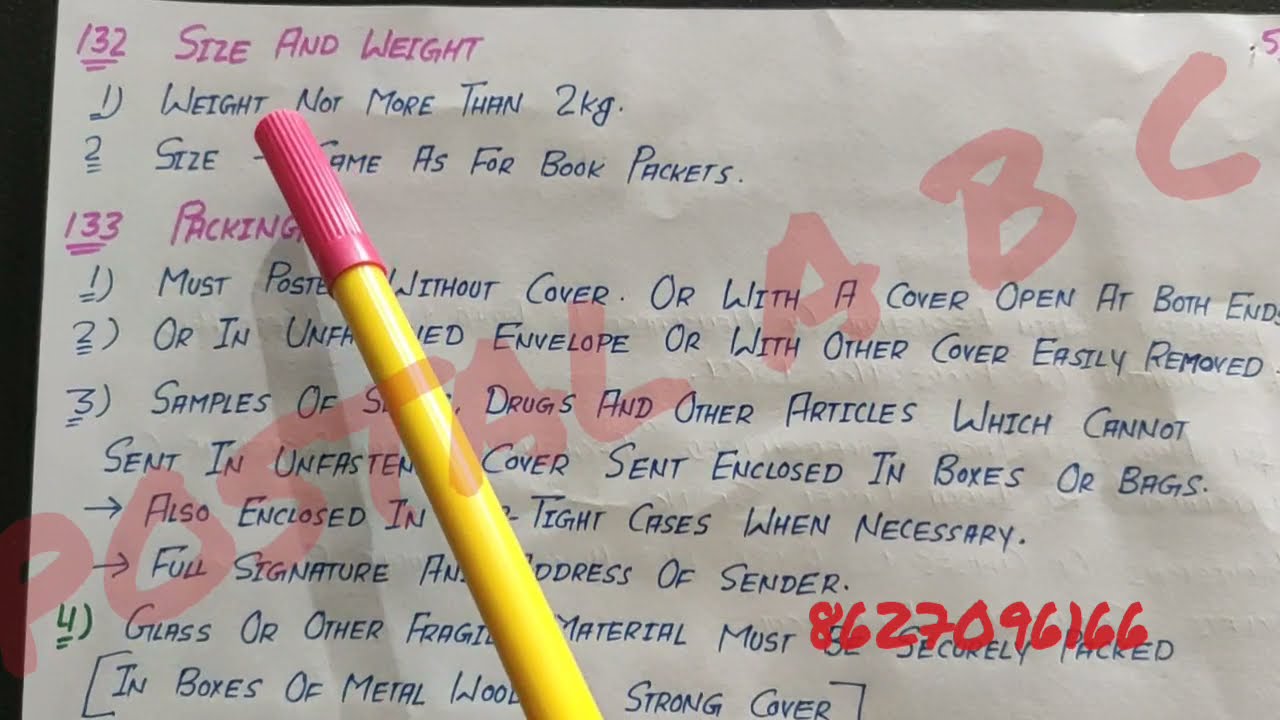 132 SIZE AND WEIGHT
1) WEIGHT NOT MORE THAN 2kg.
2 SIZE - SAME AS FOR BOOK PACKETS.
133 PACKING
1) MUST POSTED WITHOUT COVER. OR WITH A COVER OPEN AT BOTH ENDS
2) OR IN UNFASTENED ENVELOPE OR WITH OTHER COVER EASILY REMOVED.
3) SAMPLES OF DRUGS AND OTHER ARTICLES WHICH CANNOT
SENT IN UNFASTENED COVER SENT ENCLOSED IN BOXES OR BAGS.
→ ALSO ENCLOSED IN TIGHT CASES WHEN NECESSARY.
→ FULL SIGNATURE AND ADDRESS OF SENDER.
4) GLASS OR OTHER FRAGILE MATERIAL MUST BE SECURELY PACKED
[IN BOXES OF METAL WOOD STRONG COVER]
POSTAL ABC
8627096166